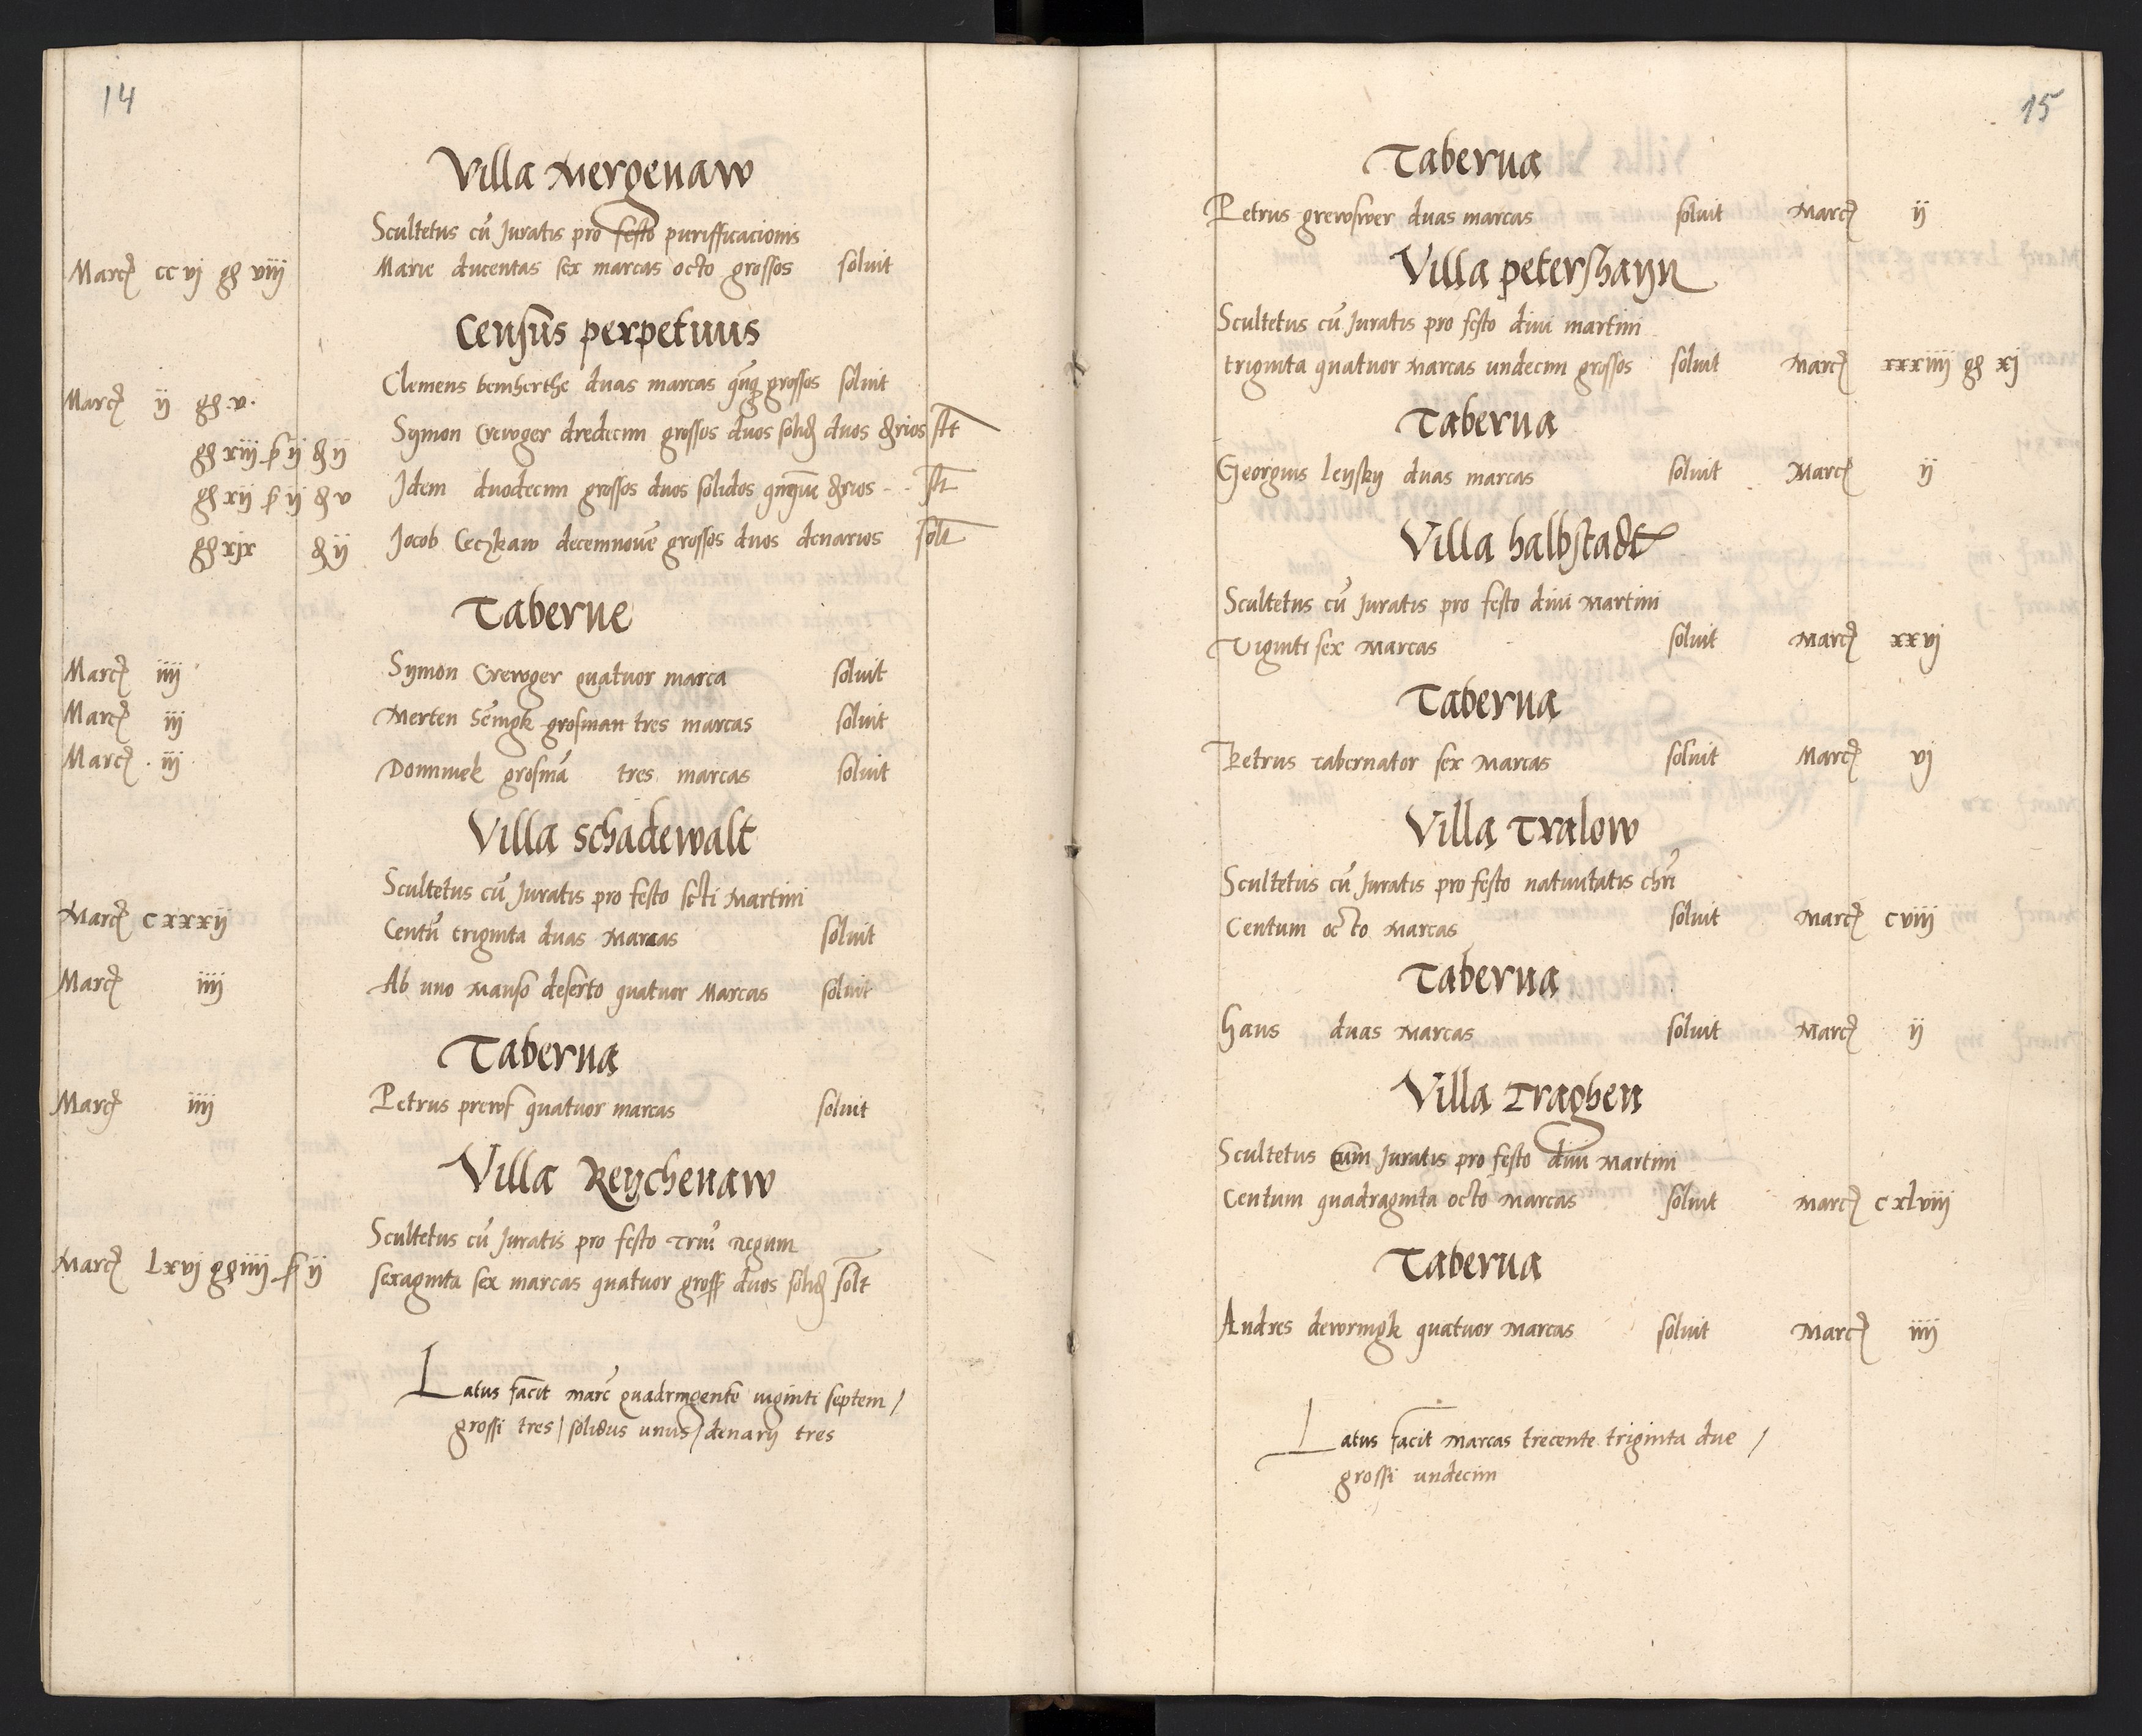 14
Villa Mergenaw
Scultetus cū Juratis pro festo purifficacionis
Marcȩ cc vj gȩ viij Marie ducentas sex marcas octo grossos soluit
Census perpetuus
Marcȩ ij gȩ .v. Clemens bemherthe duas marcas grossos soluit
gȩ xiij ẜ ij ȩ ij Symon Crewger dredecim grossos duos solidȩ duos ȩrios slt
gȩ xij ẜ ij ȩ v Idem duodecim grossos duos solidos ȩrios slt
gȩ xjx ȩ ij Jocob Ceczkaw decemnouē grossos duos denarios solt
Taberne
Marcȩ iiij Symon Crewger quatuor marca soluit
Marcȩ iij Merten grosman tres marcas soluit
Marcȩ . iij Dominiek grosmā tres marcas soluit
Villa schadewalt
Scultetus cū Juratis pro festo scti Martini
Marcȩ c xxxij Centū triginta duas Marcas soluit
Marcȩ iiij Ab uno Manso deserto quatuor Marcas soluit
Taberna
Marcȩ iiij Petrus prews quatuor marcas soluit
Villa Reychenaw
Scultetus cū Juratis pro festo Triū Regum
Marcȩ Lxvj gȩ iiij ẜ ij sexaginta sex marcas quatuor gross duos solidȩ solt
Latus facit marc quadringente viginti septem /
grossi tres / solidus unus / denarij tres
15
Taberna
Petrus grewswer duas marcas soluit Marcȩ ij
Villa petershayn
Scultetus cū Juratis pro festo diui martini
triginta quatuor Marcas undecim grossos soluit Marcȩ xxxiiij gȩ xj
Taberna
Georgius leysky duas marcas soluit Marcȩ ij
Villa halbstadt
Scultetus cū Juratis pro festo diui Martini
Viginti sex Marcas soluit Marcȩ xxvj
Taberna
Petrus tabernator sex Marcas soluit Marcȩ vj
Villa Tralow
Scultetus cū Juratis pro festo natiuitatis chri
Centum octo Marcas soluit Marcȩ c viij
Taberna
Hans duas Marcas soluit Marcȩ ij
Villa Traghen
Scultetus cum Juratis pro festo diui Martini
Centum quadraginta octo Marcas soluit Marcȩ c xlviij
Taberna
Andres dewringk quatuor Marcas soluit Marcȩ iiij
Latus facit marcas trecente triginta due /
grossi undecim